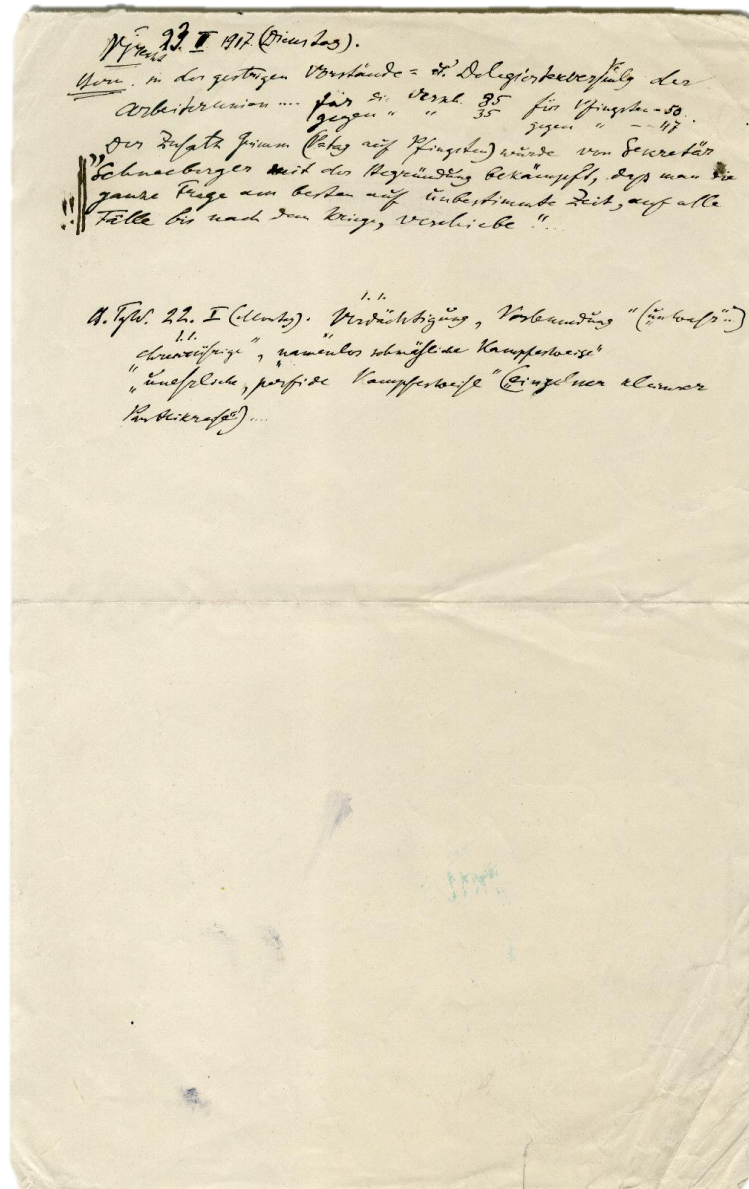 23. I 1917. (Dienstag).
Horn. in der gestrigen Vorstände= u. Delegiertenversamlg der
Arbeiterunion .... für die Versch. 85 für Pfingsten – 50.
gegen " " 35 gegen " – – 47
Der Zusatz Grimm (Ptag auf Pfingsten) wurde von Sekretär
!! "Schneeberger mit der Begründung bekämpft, daß man die
ganze Frage am besten auf unbestimmte Zeit, auf alle
Fälle bis nach dem Kriege, verschiebe"...
22. I (Montag). Verdächtigung, Verleumdung" ("unwahr":)
", "namenlos schmähliche Kampfesweise"
"unehrliche, perfide Kampfesweise" (einzelner kleiner
Parteikreise") ....